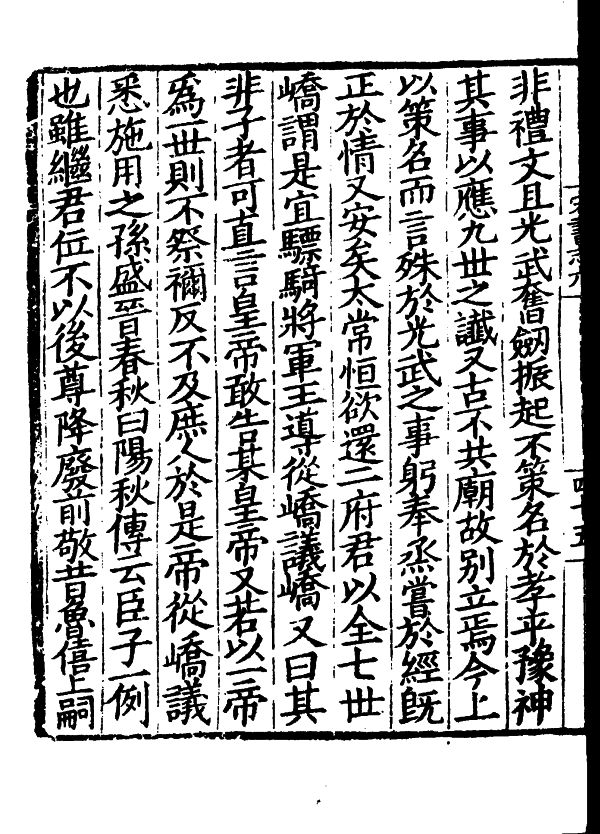 非禮文且光武奮劔振起不策名於孝平豫神
其事以應九世之讖又古不共廟故別立焉今上
以策名而言殊於光武之事躬奉烝嘗於經旣
正於情又安矣太常恒欲還二府君以全七世
嶠謂是宜驃騎將軍王導從嶠議嶠又曰其
非子者可直言皇帝敢告某皇帝又若以一帝
爲一世則不祭禰反不及庶人於是帝從嶠議
悉施用之孫盛晉春秋曰陽秋傳云臣子一例
也雖繼君位不以後尊降廢前敬昔魯僖上嗣